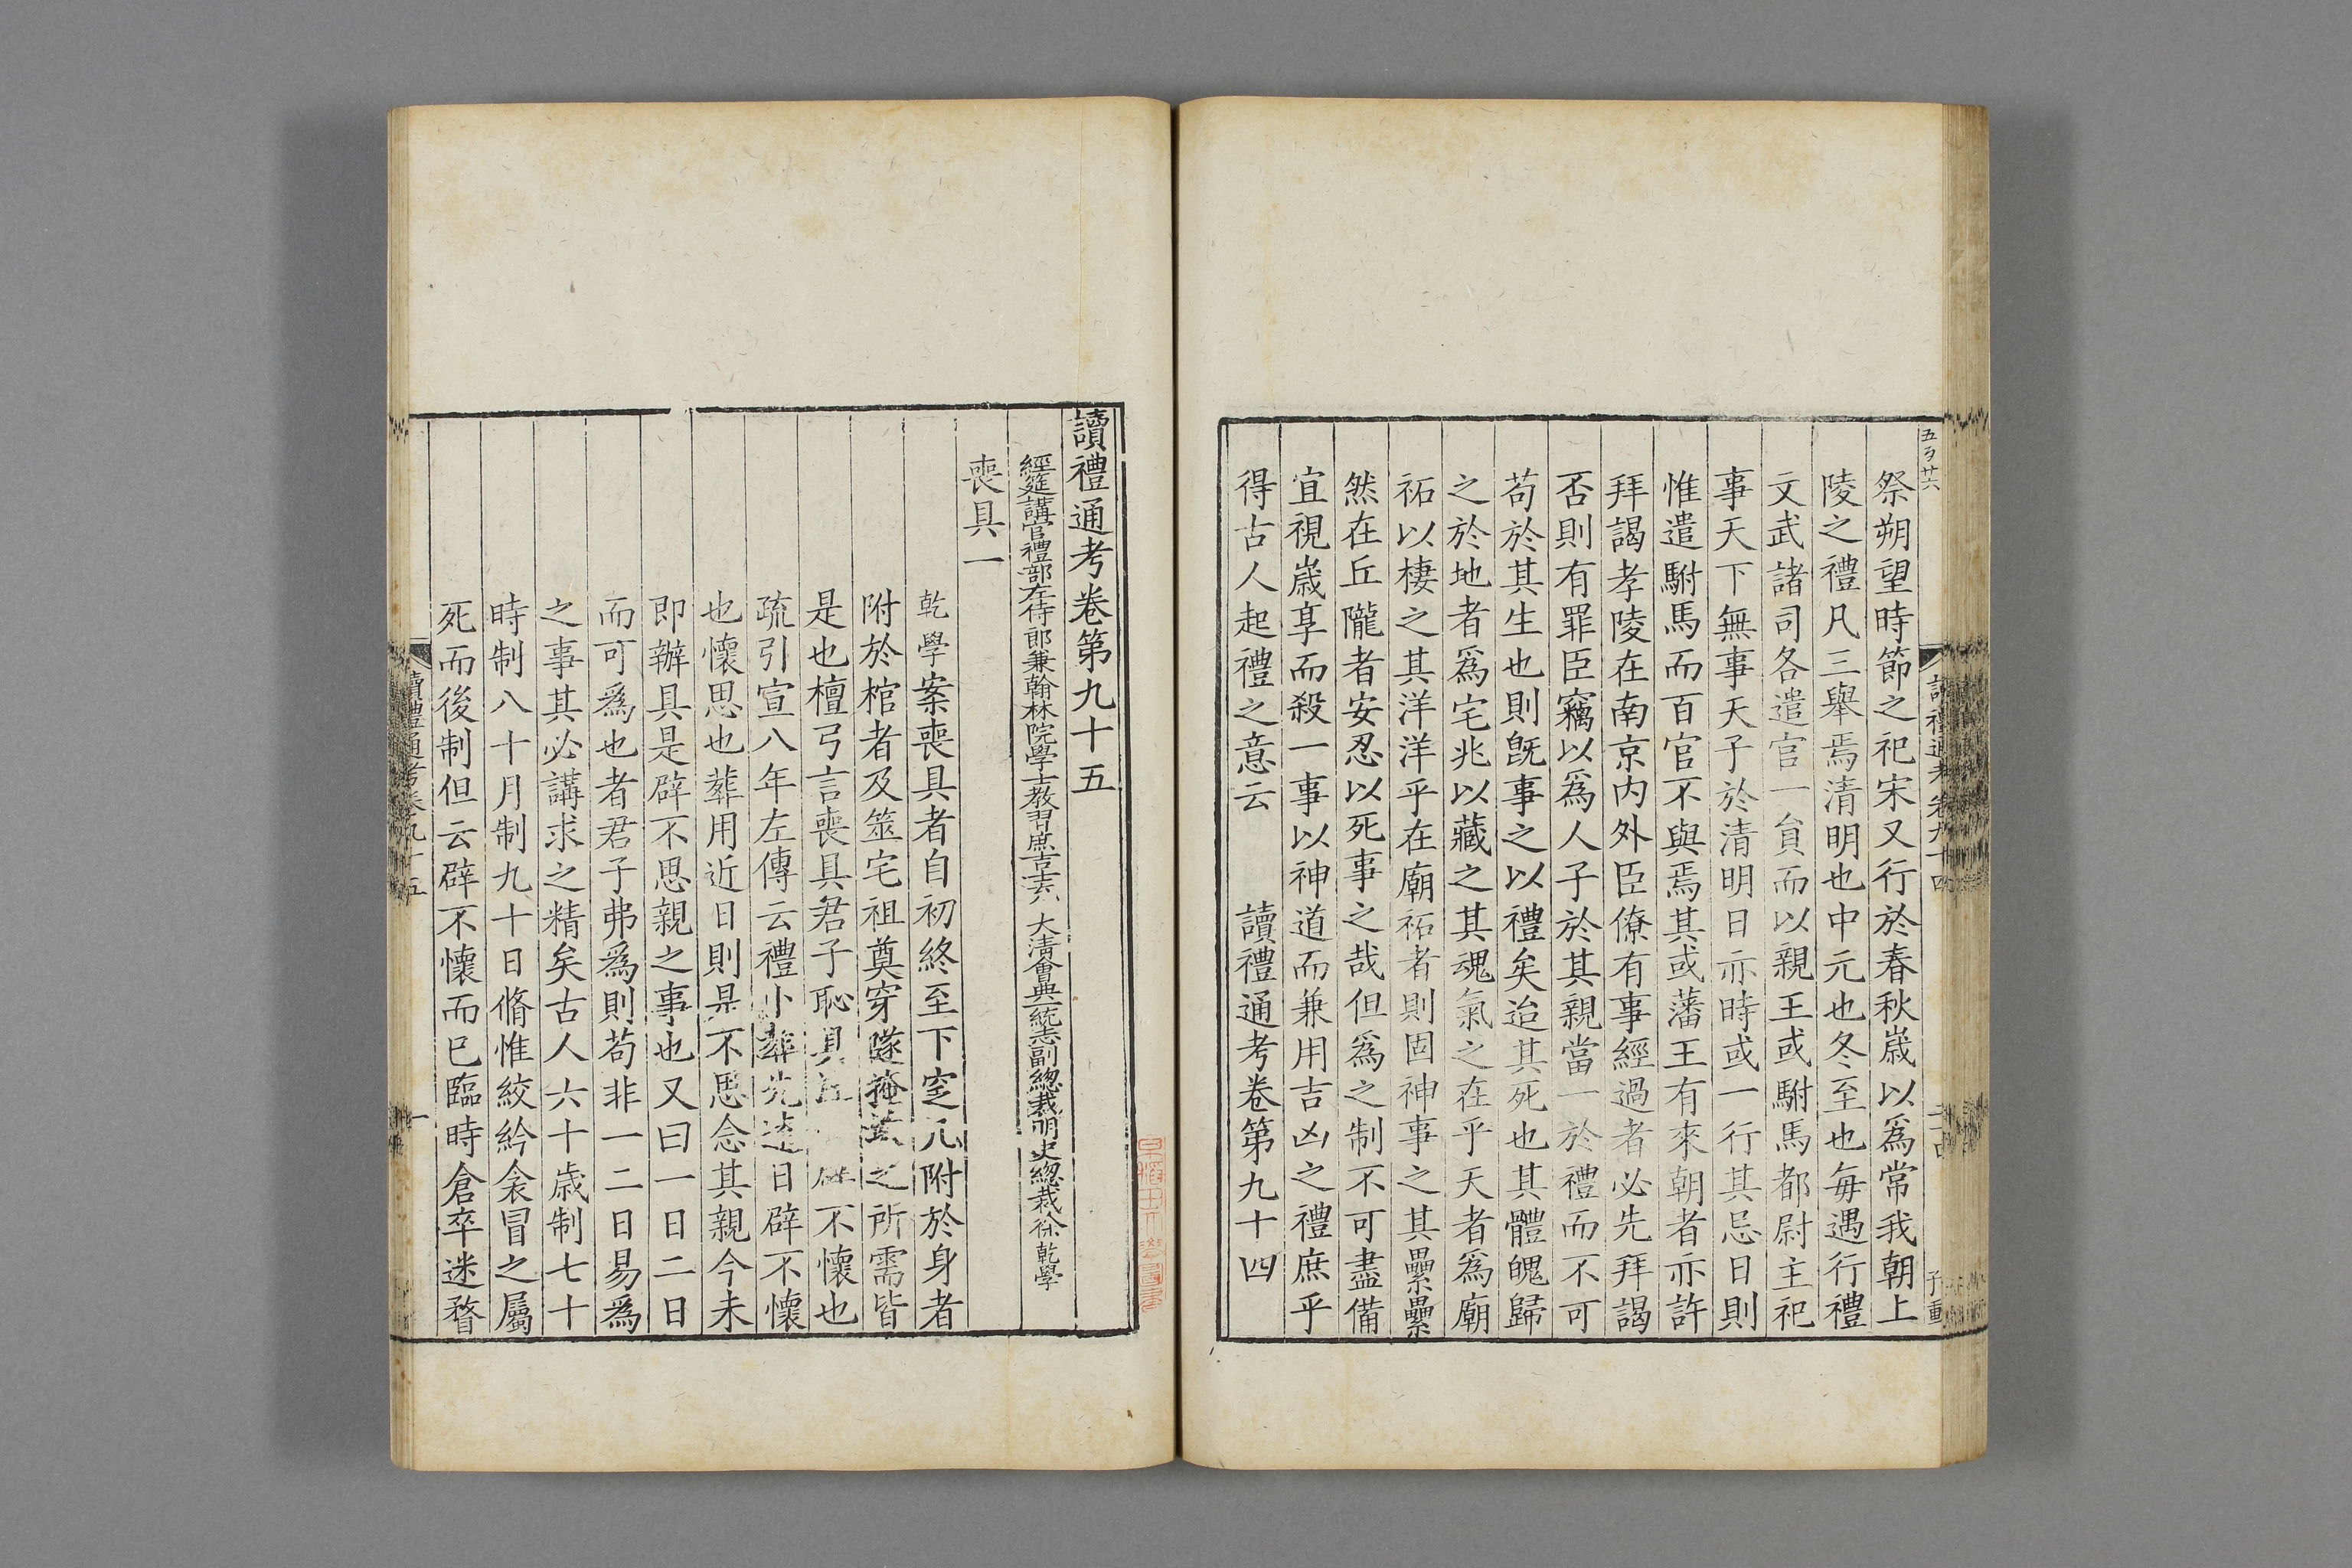 祭朔望時節之祀宋又行於春秋嵗以爲常我朝上
陵之禮凡三舉焉清明也中元也冬至也每遇行禮
文武諸司各遣官一員而以親王或駙馬都尉主祀
事天下無事天子於清明日亦時或一行其忌日則
惟遣駙馬而百官不與焉其或藩王有來朝者亦許
拜謁孝陵在南京内外臣僚有事經過者必先拜謁
否則有罪臣竊以爲人子於其親當一於禮而不可
苟於其生也則旣事之以禮矣迨其死也其體魄歸
之於地者爲宅兆以藏之其魂氣之在乎天者爲廟
祏以棲之其洋洋乎在廟祏者則固神事之其纍纍
然在丘隴者安忍以死事之哉但爲之制不可盡備
宜視嵗享而殺一事以神道而兼用吉凶之禮庶乎
得古人起禮之意云　讀禮通考卷第九十四
讀禮通考卷第九十五
經筵講官禮部左侍郎兼翰林院學士教習庶吉士 大清會典一統志副總裁明史總裁徐乾學
喪具一
乾學案喪具者自初終至下窆凡附於身者
附於棺者及筮宅祖奠穿隧掩 之所需皆
是也檀弓言喪具君子恥具 不懷也
疏引宣八年左傳云禮卜葬先遠日辟不懷
也懷思也葬用近日則是不思念其親今未
即辦具是辟不思親之事也又曰一日二日
而可爲也者君子弗爲則苟非一二日易爲
之事其必講求之精矣古人六十歲制七十
時制八十月制九十日脩惟絞紟衾冒之屬
死而後制但云辟不懷而已臨時倉卒迷瞀
讀禮通考卷九十五
一